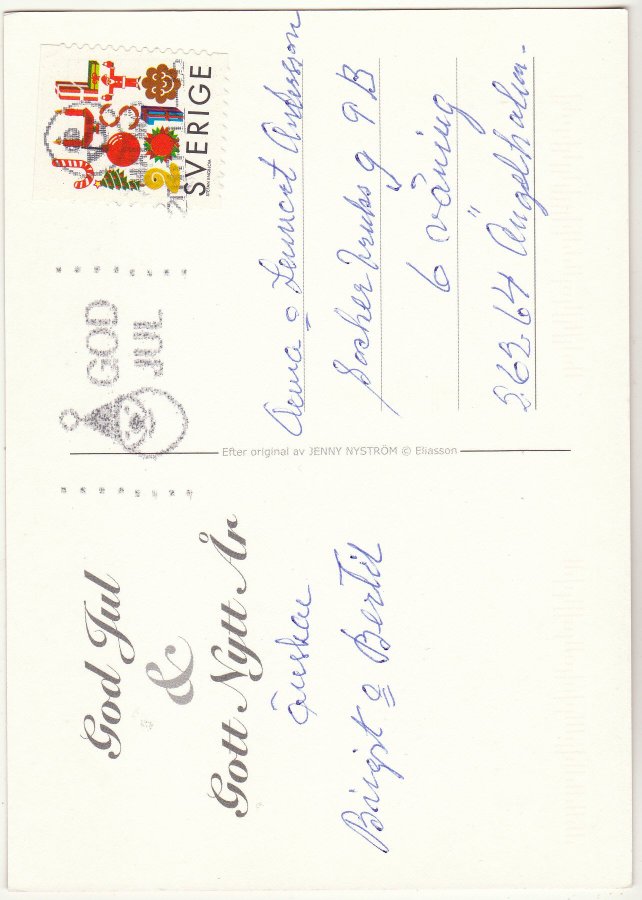 God Jul
&
Gott Nytt År
önskar
Birgit o Bertil
Efter original av JENNY NYSTRÖM © Eliasson
GOD
JUL
SVERIGE
Anna o Lennart Andersson
Sockerbruksg 9 B
6 våning
262 64 Ängelholm.